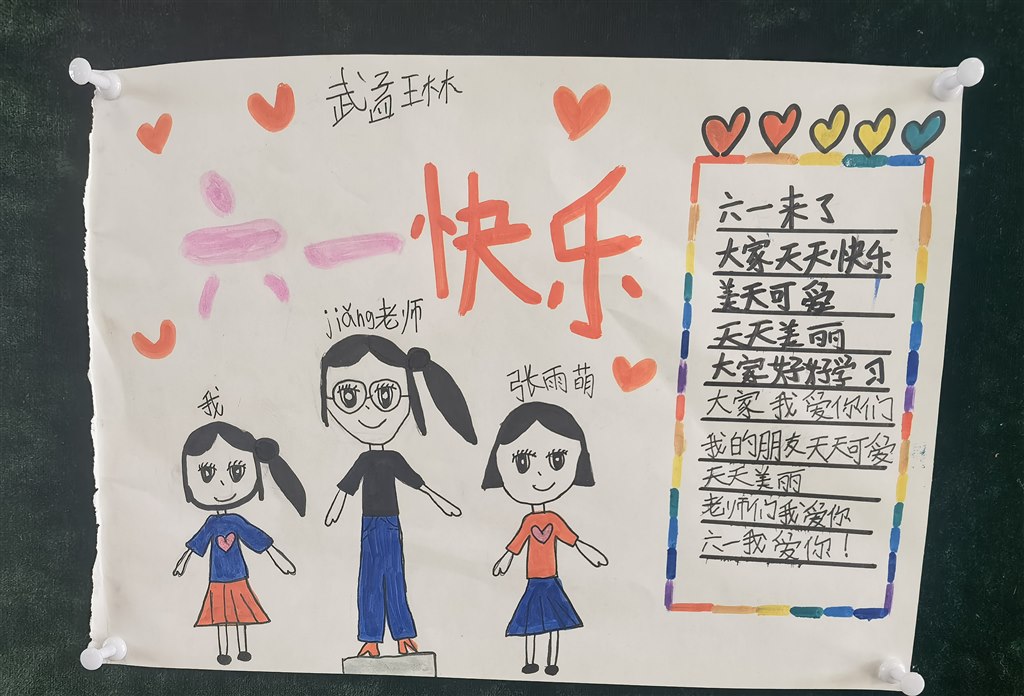 武孟王林林
六一快乐
jiǎng老师
张雨萌
我
六一来了
大家天天快乐
美天可爱
天天美丽
大家好好学习
大家我爱你们
我的朋友天天可爱
天天美丽
老师们我爱你
六一我爱你！